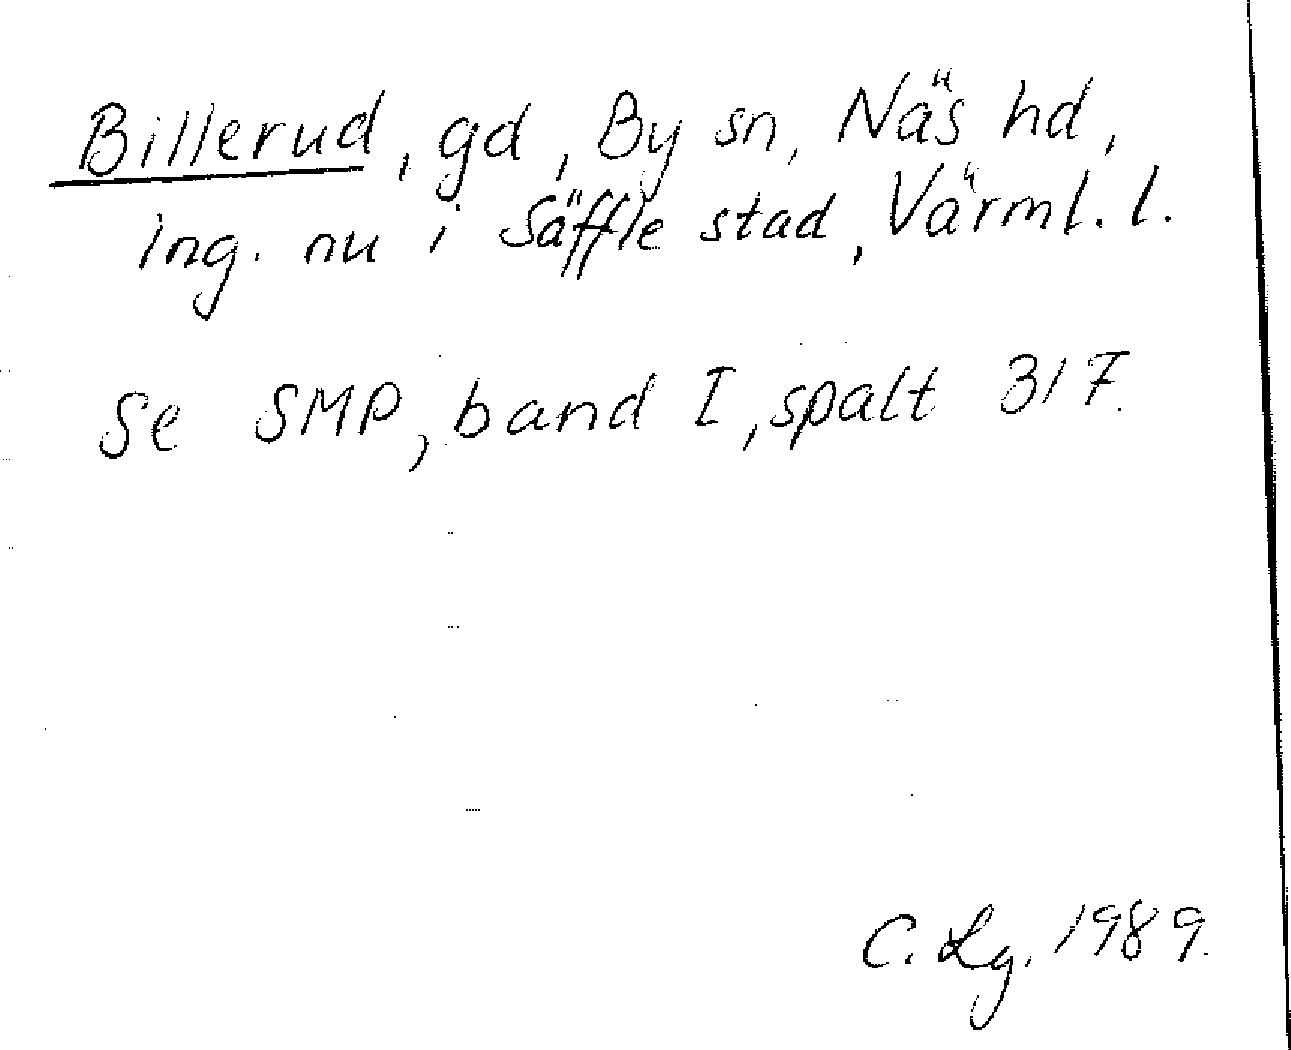 Billerud, gd, By sn, Näs hd,
ing. nu i Säffle stad, Värml. l.
Se SMP, band I, spalt 317.
C. Lg. 1989.